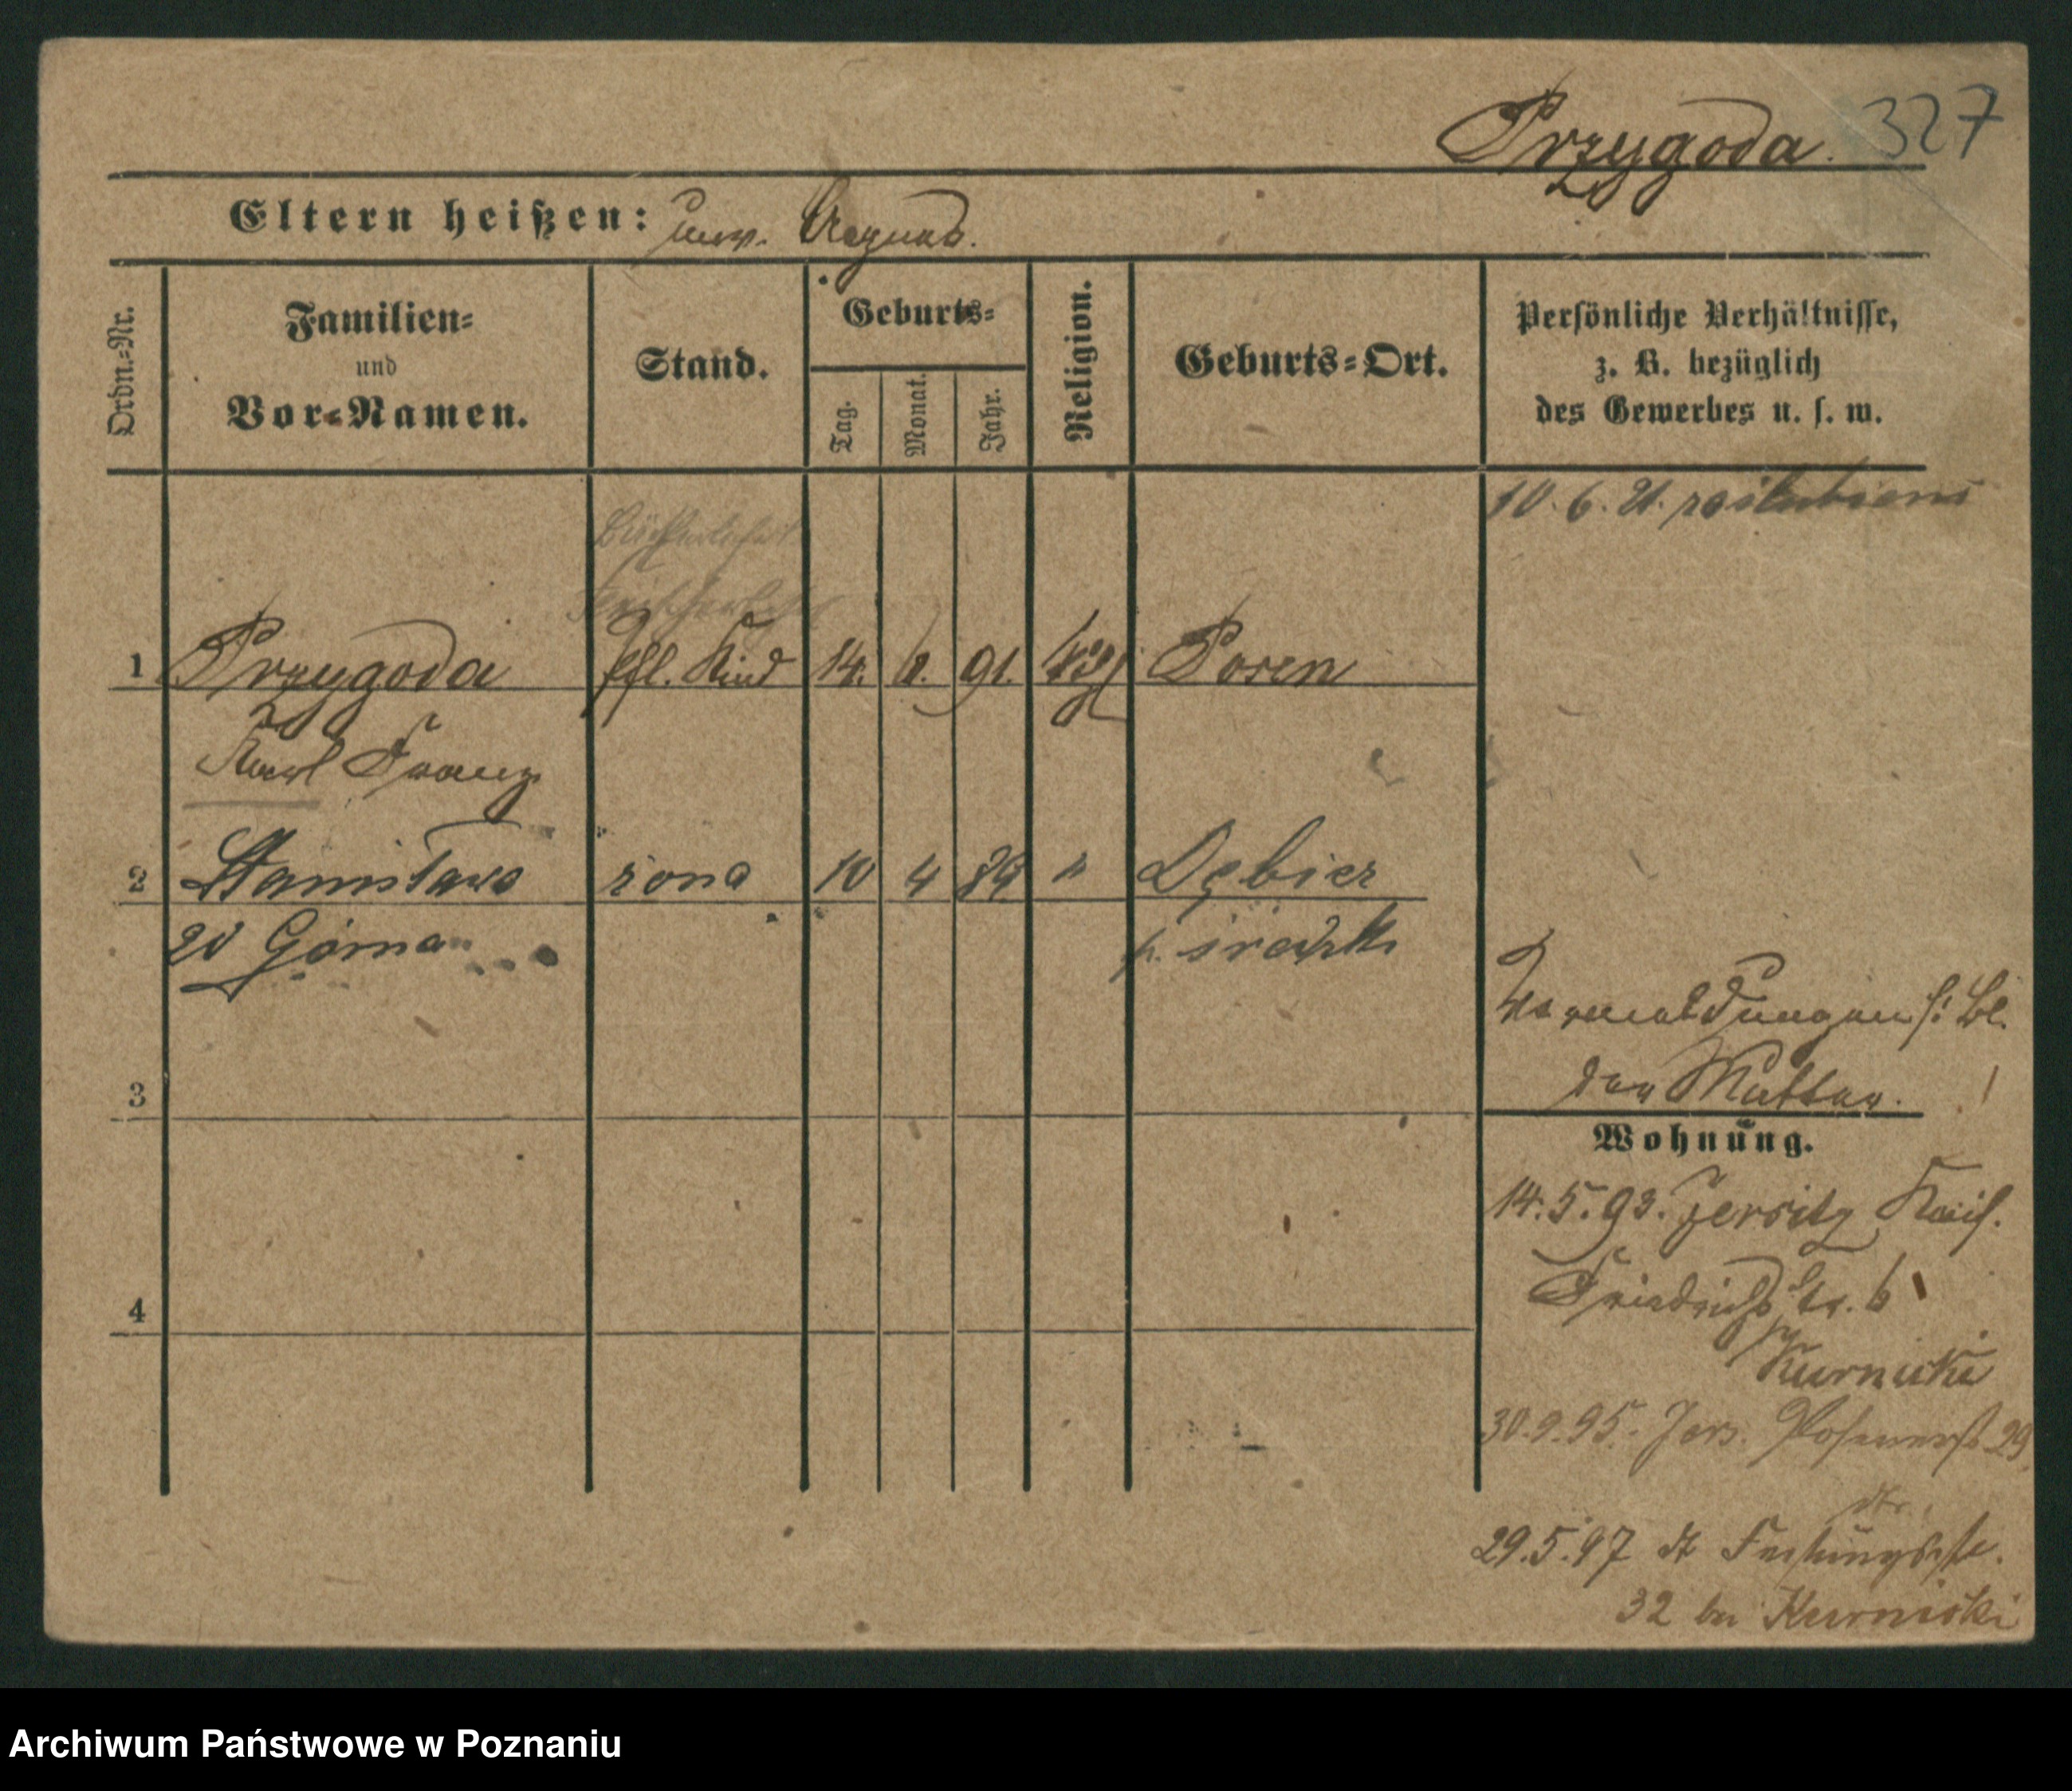 Przygoda. 327
Eltern heißen: unv. Agnes.
Ordn.=Nr.
Familien=
und
Vor=Namen.
Stand.
Geburts=
Tag.
Monat.
Jahr.
Religion.
Geburts=Ort.
Persönliche Verhältnisse,
z. B. bezüglich
des Gewerbes u. s. w.
10. 6. 21.
1 Przygoda Pfl. Kind 14. 91. Posen
Karl Franz
2 Stanisława żona 10 4 89 " Dębiec
zd Górna p.
Vermeldungen s: Bl.
der Mutter.
Wohnung.
14. 5. 93. Jersitz Kais.
Friedrichstr. 6
Kurnicki
30. 9. 95. Jers. Posenerst 29
29. 5. 97 dt Festungsstr.
32 bei Kurnicki
3
4
Archiwum Państwowe w Poznaniu